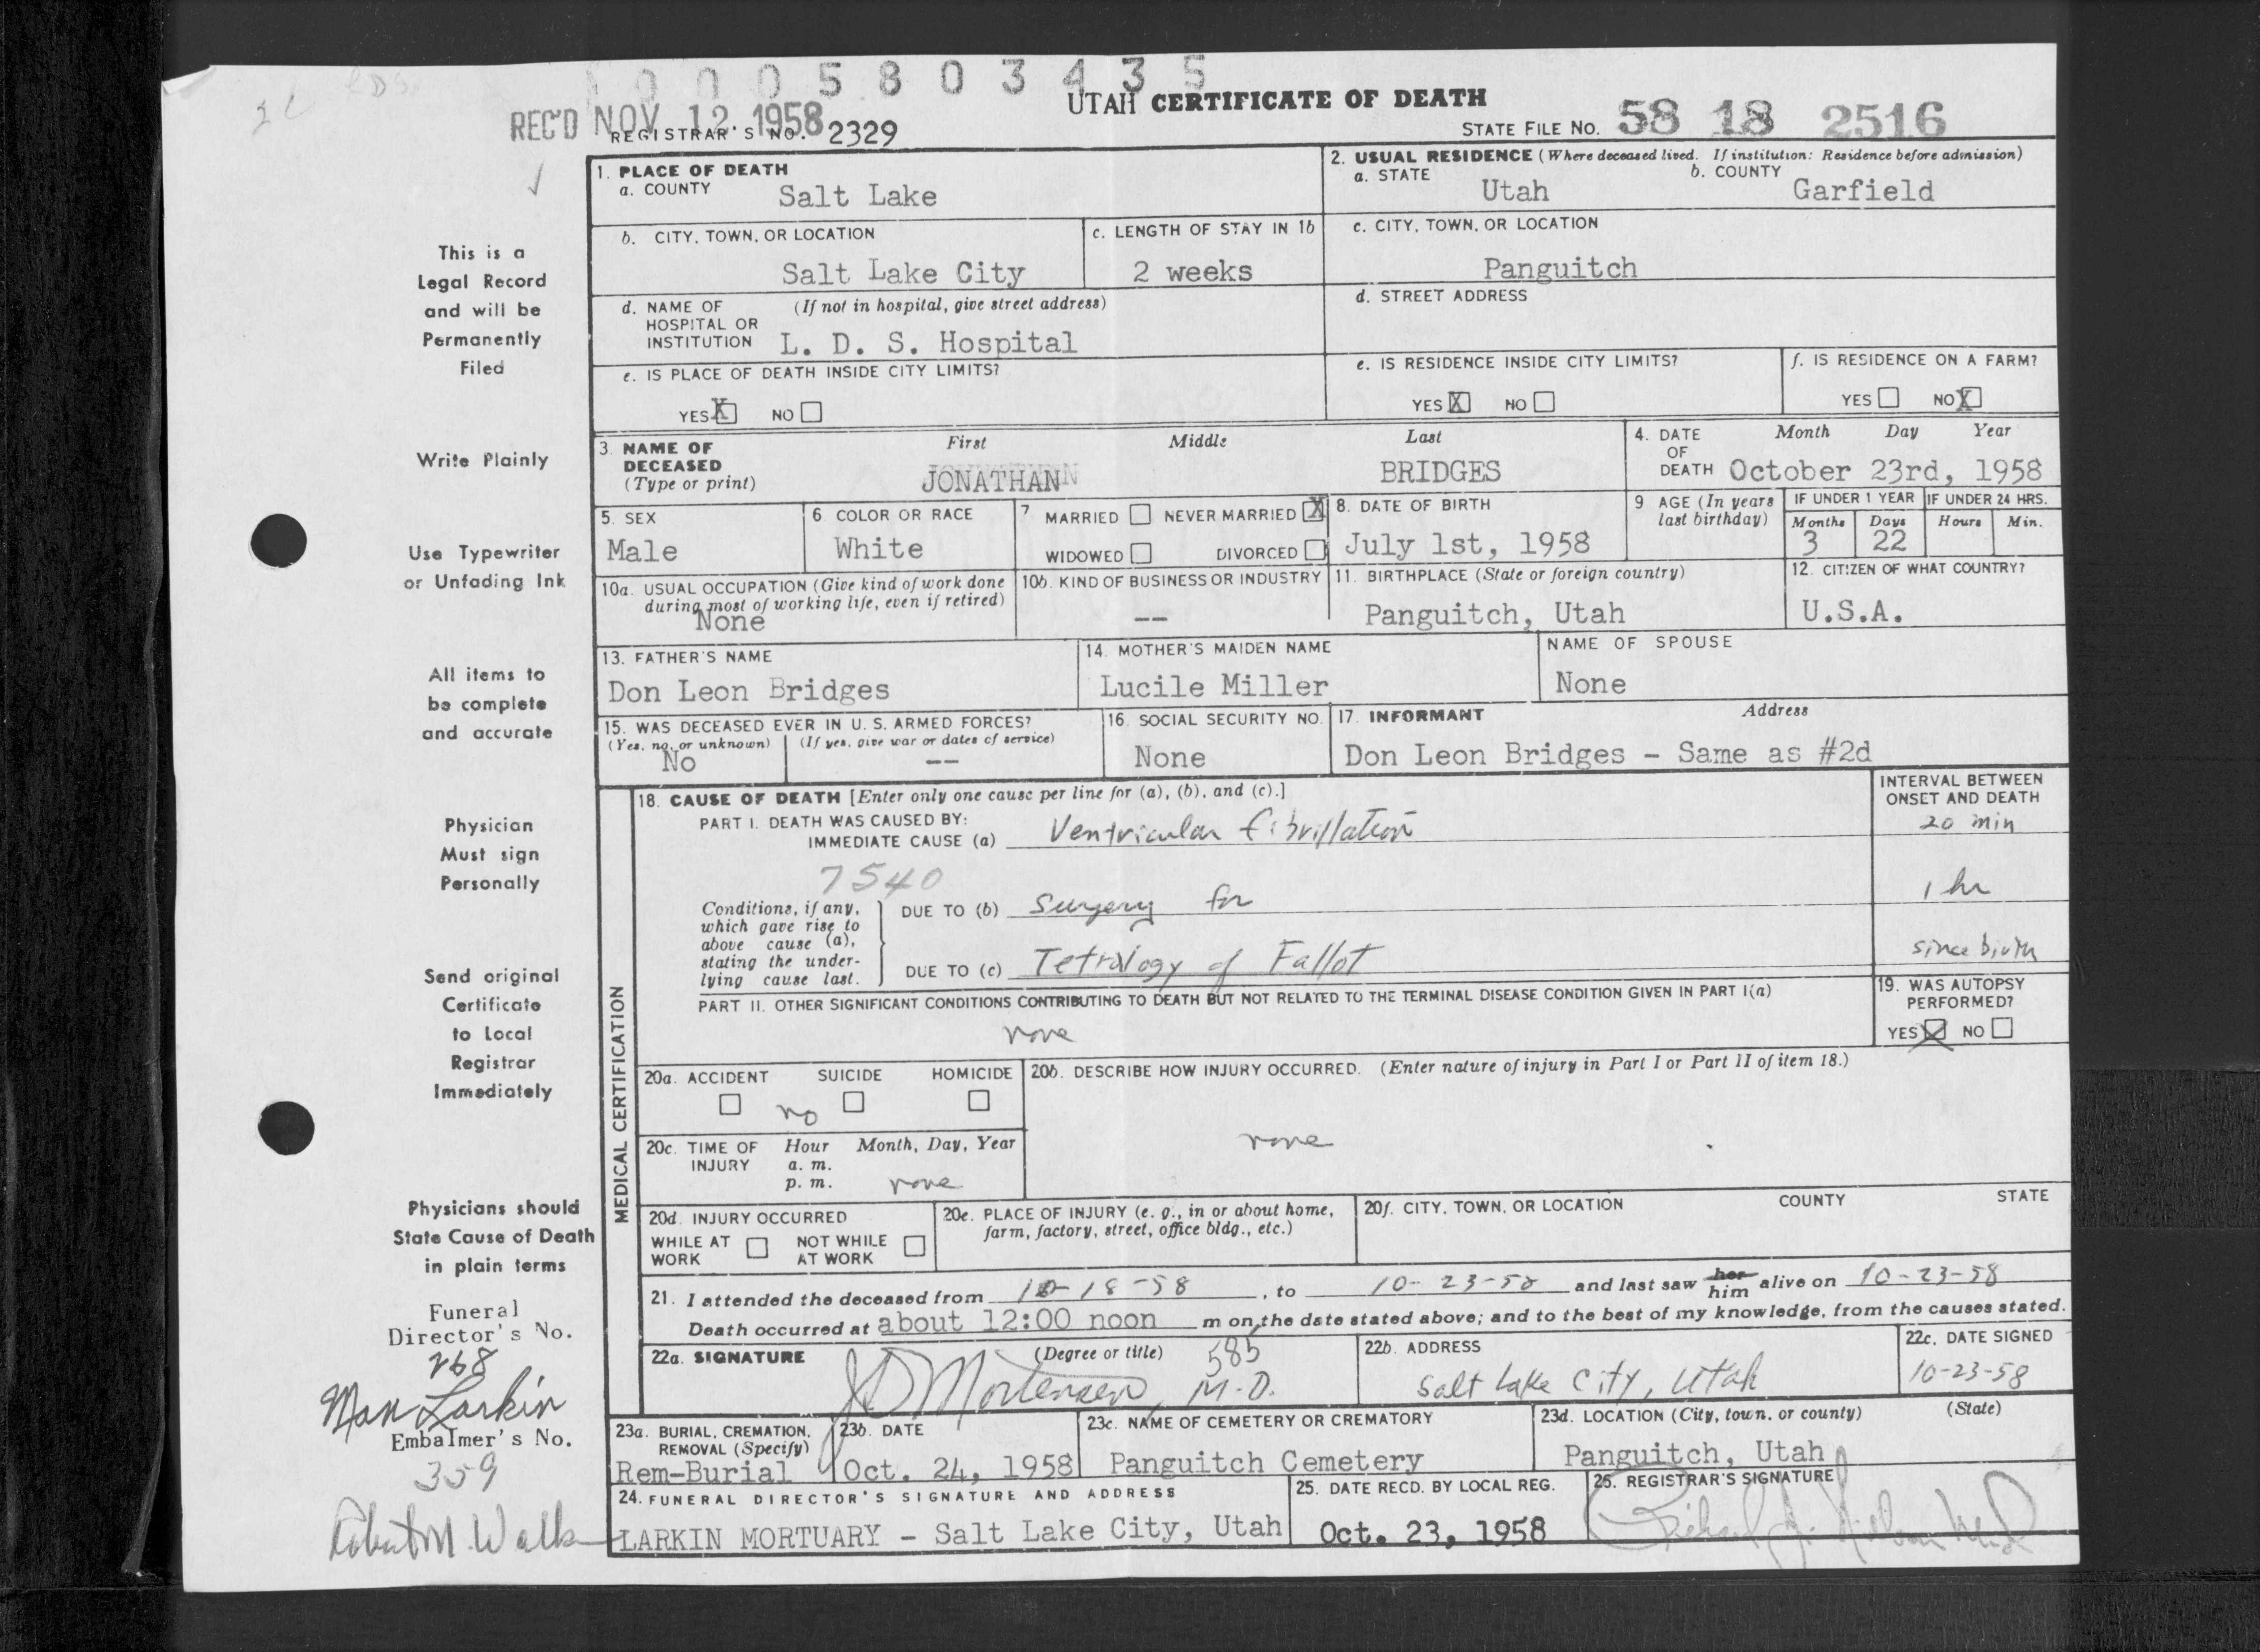 10005803435
REC'D NOV 12 1958
REGISTRAR'S NO. 2329
UTAH CERTIFICATE OF DEATH
STATE FILE NO. 58 18 2516
This is a
Legal Record
and will be
Permanently
Filed
Write Plainly
Use Typewriter
or Unfading Ink
All items to
be complete
and accurate
Physician
Must sign
Personally
Send original
Certificate
to Local
Registrar
Immediately
Physicians should
State Cause of Death
in plain terms
Funeral
Director's No.
268
Max Larkin
Embalmer's No.
359
Robert M. Walk
1. PLACE OF DEATH
a. COUNTY Salt Lake
2. USUAL RESIDENCE (Where deceased lived. If institution: Residence before admission)
a. STATE Utah b. COUNTY Garfield
b. CITY, TOWN, OR LOCATION
Salt Lake City
c. LENGTH OF STAY IN 1b
2 weeks
c. CITY, TOWN, OR LOCATION
Panguitch
d. NAME OF (If not in hospital, give street address)
HOSPITAL OR
INSTITUTION L. D. S. Hospital
d. STREET ADDRESS
e. IS PLACE OF DEATH INSIDE CITY LIMITS?
YES X NO
e. IS RESIDENCE INSIDE CITY LIMITS?
YES X NO
f. IS RESIDENCE ON A FARM?
YES NO X
3. NAME OF DECEASED (Type or print)
First Middle Last
JONATHAN BRIDGES
4. DATE OF DEATH Month Day Year
October 23rd, 1958
5. SEX
Male
6 COLOR OR RACE
White
7 MARRIED NEVER MARRIED X
WIDOWED DIVORCED
8. DATE OF BIRTH
July 1st, 1958
9 AGE (In years last birthday)
IF UNDER 1 YEAR IF UNDER 24 HRS.
Months Days Hours Min.
3 22
10a. USUAL OCCUPATION (Give kind of work done
during most of working life, even if retired)
None
10b. KIND OF BUSINESS OR INDUSTRY
--
11. BIRTHPLACE (State or foreign country)
Panguitch, Utah
12. CITIZEN OF WHAT COUNTRY?
U.S.A.
13. FATHER'S NAME
Don Leon Bridges
14. MOTHER'S MAIDEN NAME
Lucile Miller
NAME OF SPOUSE
None
15. WAS DECEASED EVER IN U. S. ARMED FORCES?
(Yes, no, or unknown) (If yes, give war or dates of service)
No --
16. SOCIAL SECURITY NO.
None
17. INFORMANT Address
Don Leon Bridges - Same as #2d
MEDICAL CERTIFICATION
18. CAUSE OF DEATH [Enter only one cause per line for (a), (b), and (c).]
INTERVAL BETWEEN
ONSET AND DEATH
PART I. DEATH WAS CAUSED BY:
IMMEDIATE CAUSE (a) Ventricular fibrillation 20 min
7540
Conditions, if any,
which gave rise to
above cause (a),
stating the under-
lying cause last.
DUE TO (b) Surgery for 1 hr
DUE TO (c) Tetralogy of Fallot since birth
PART II. OTHER SIGNIFICANT CONDITIONS CONTRIBUTING TO DEATH BUT NOT RELATED TO THE TERMINAL DISEASE CONDITION GIVEN IN PART I(a)
none
19. WAS AUTOPSY
PERFORMED?
YES X NO
20a. ACCIDENT SUICIDE HOMICIDE
no
20b. DESCRIBE HOW INJURY OCCURRED. (Enter nature of injury in Part I or Part II of item 18.)
none
20c. TIME OF INJURY Hour Month, Day, Year
a. m.
p. m. none
20d. INJURY OCCURRED
WHILE AT WORK NOT WHILE AT WORK
20e. PLACE OF INJURY (e. g., in or about home,
farm, factory, street, office bldg., etc.)
20f. CITY, TOWN, OR LOCATION COUNTY STATE
21. I attended the deceased from 10-18-58, to 10-23-58 and last saw her him alive on 10-23-58
Death occurred at about 12:00 noon m on the date stated above; and to the best of my knowledge, from the causes stated.
22a. SIGNATURE (Degree or title) 585
JD Mortensen, M.D.
22b. ADDRESS
Salt Lake City, Utah
22c. DATE SIGNED
10-23-58
23a. BURIAL, CREMATION,
REMOVAL (Specify)
Rem-Burial
23b. DATE
Oct. 24, 1958
23c. NAME OF CEMETERY OR CREMATORY
Panguitch Cemetery
23d. LOCATION (City, town, or county) (State)
Panguitch, Utah
24. FUNERAL DIRECTOR'S SIGNATURE AND ADDRESS
LARKIN MORTUARY - Salt Lake City, Utah
25. DATE RECD. BY LOCAL REG.
Oct. 23, 1958
26. REGISTRAR'S SIGNATURE